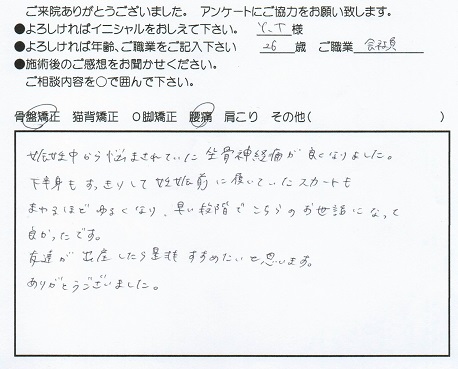 ご来院ありがとうございました。 アンケートにご協力をお願い致します。
●よろしければイニシャルをおしえて下さい。 Y.T 様
●よろしければ年齢、ご職業をご記入下さい 26 歳 ご職業 会社員
●施術後のご感想をお聞かせください。
ご相談内容を○で囲んで下さい。
骨盤矯正 猫背矯正 O脚矯正 腰痛 肩こり その他( )
妊娠中から悩まされていた坐骨神経痛が良くなりました。
下半身もすっきりして妊娠前に履いていたスカートも
まわるほどゆるくなり、早い段階でこちらのお世話になって
良かったです。
友達が出産したら是非すすめたいと思います。
ありがとうございました。